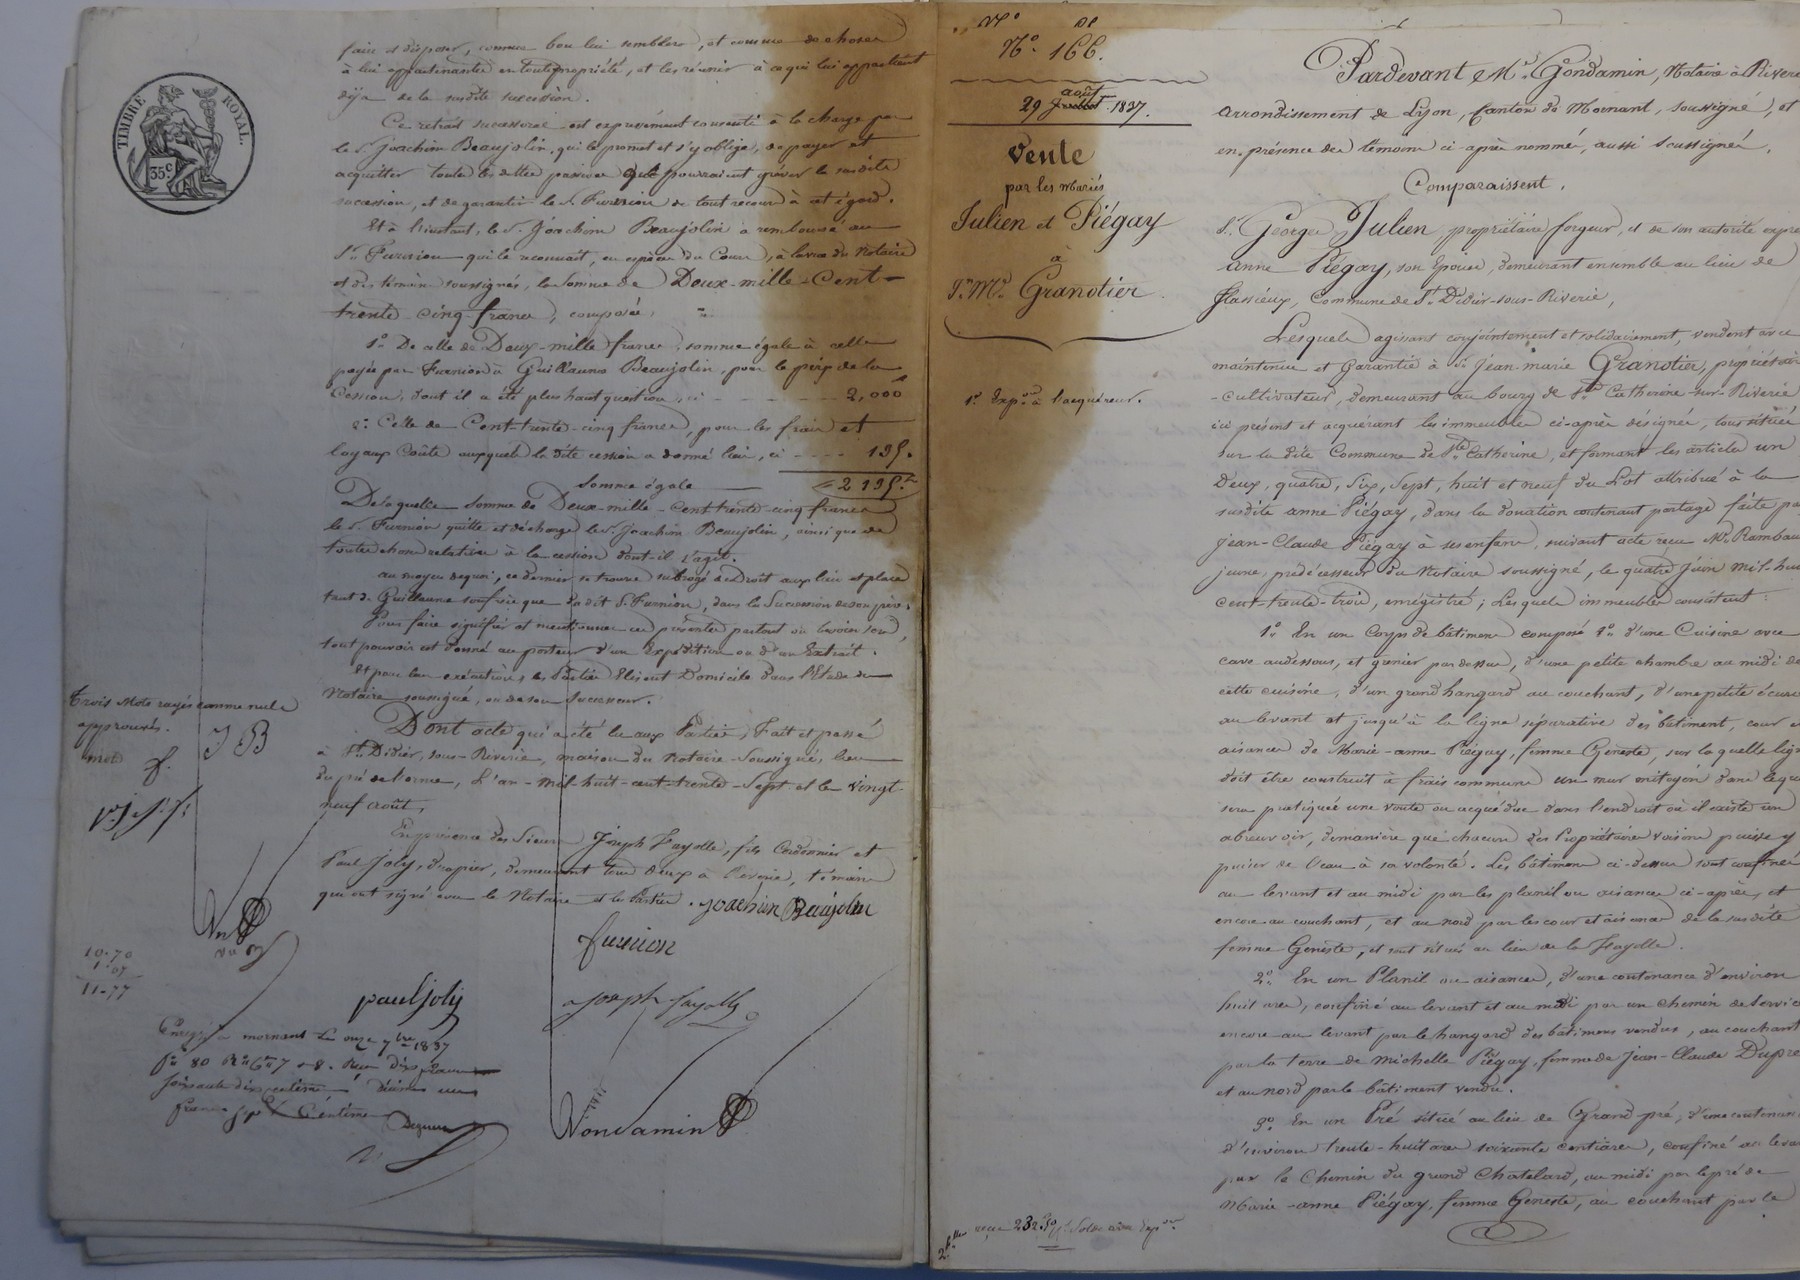 TIMBRE ROYAL
35 c.
faire et disposer, comme bon lui semblera, et comme de choses
à lui appartenantes en toute propriété, et les réunir à ce qui lui appartient
déjà de la susdite succession.
Ce retrait successoral est expressément consenti à la charge par
le s. Joachim Beaujolin, qui le promet et s'y oblige, de payer et
acquitter toutes les dettes passives qui pourraient grever la susdite
succession, et de garantir le s. Furnion de tout recours à cet égard.
Et à l'instant, le s. Joachim Beaujolin a remboursé au
sr. Furnion qui le reconnait, en espèces du Cours, à la vue du Notaire
et des témoins soussignés, la Somme de Deux-mille-Cent-
trente-cinq francs, composée,
1º De celle de Deux-mille francs, somme égale à celle
payée par Furnion à Guillaume Beaujolin, pour le prix de la
Cession, dont il a été plus haut question, ci - - - - 2,000 f
2º Celle de Cent-trente-cinq francs, pour les frais et
loyaux Coûts auxquels la dite cession a donné lieu, ci - - - - 135.
Somme égale 2135. f
De laquelle somme de Deux-mille-cent-trente-cinq francs
le s. Furnion quitte et décharge le s. Joachim Beaujolin, ainsi que de
toutes choses relatives à la cession dont-il s'agit.
Au moyen de quoi, ce dernier se trouve subrogé de Droit aux lieu et place
tant de Guillaume son frère que du dit s. Furnion, dans la Succession de son père.
Pour faire signifier et mentionner ces présentes partout où besoin sera,
tout pouvoir est donné au porteur d'un Expédition ou d'un Extrait.
Et pour leur exécution, les Parties Elisent Domicile dans l'Etude du
Notaire soussigné, ou de son Successeur.
Dont acte qui a été lu aux Parties, Fait et passé
à St. Didier-sous-Riverie, maison du Notaire soussigné, lieu
du pré de Verne, L'an-mil-huit-cent-trente-sept et le vingt-
neuf août,
En présence des Sieurs Joseph Fayolle, fils Cordonnier et
Paul Joly, drapier, demeurant tous deux à Riverie, témoins
qui ont signé avec le Notaire et les Parties. Joachim Beaujolin
Furnion
paul joly
joseph fayolle
Gondamin
Trois mots rayés comme nuls
approuvés.
J B
10-70
1-07
11-77
Enregé à mornant Le onze 7bre 1837
Fº 80 Rº 6 7 8. Reçu dix francs
soixante dix centimes, Décime un
franc sept Centimes
Nº 166.
29 août 1837.
Vente
par les Mariés
Julien et Piégay
à
Jn. Mie. Granotier
1e Expon à l'acquéreur.
Pardevant Me. Gondamin, Notaire à Riverie
arrondissement de Lyon, Canton de Mornant, soussigné, et
en présence des témoins ci-après nommés, aussi soussignés,
Comparaissent,
Sr. George Julien, propriétaire forgeur, et de son autorité expresse
Anne Piégay, son Epouse, demeurant ensemble au lieu de
Flassieux, Commune de St. Didier-sous-Riverie,
Lesquels agissant conjointement et solidairement, vendent avec
maintenue et Garantie à Sr. Jean-marie Granotier, propriétaire
-cultivateur, demeurant au bourg de Ste. Catherine-sur-Riverie
ici présent et acquérant les immeubles ci-après désignés, tous situés
sur la dite Commune de Ste. Catherine, et formant les articles un
Deux, quatre, Six, Sept, huit et neuf du Lot attribué à la
susdite anne Piégay, dans la donation contenant partage faite par
jean-Claude Piégay à ses enfans, suivant acte reçu Me. Rambau
jeune, prédécesseur du Notaire soussigné, le quatre juin mil-huit
cent-trente-trois, enrégistré; Lesquels immeubles consistent:
1º. En un Corps de bâtimens composé 1º. d'une Cuisine avec
cave audessous, et grenier par dessus, d'une petite chambre au midi de
cette cuisine, d'un grand hangard au couchant, d'une petite écurie
au levant et jusqu'à la ligne séparative des bâtimens, cour et
aisances de Marie-anne Piégay, femme Geneste, sur laquelle ligne
doit être construit à frais communs un mur mitoyen dans lequel
sera pratiquée une voute ou acquéduc dans l'endroit où il existe un
abreuvoir, de manière que chacun des Propriétaires voisins puisse y
puiser de l'eau à sa volonté. Les bâtimens ci-dessus sont confinés
au levant et au midi par les planil ou aisances ci-après, et
encore au couchant, et au nord par les cour et aisances de la susdite
femme Geneste, et sont situés au lieu de la Fayolle.
2º. En un Planil ou aisances, d'une contenance d'environ
huit ares, confiné au levant et au midi par un chemin de service
encore au levant par le hangard des bâtimens vendus, au couchant
par la terre de Michelle Piégay, femme de Jean-Claude Dupre
et au nord par le bâtiment vendu.
3º. En un Pré situé au lieu de Grand pré, d'une contenance
d'environ trente-huit ares soixante centiares, confiné au levant
par le Chemin du grand Chatelard, au midi par le pré de
Marie-anne Piégay, femme Geneste, au couchant par le